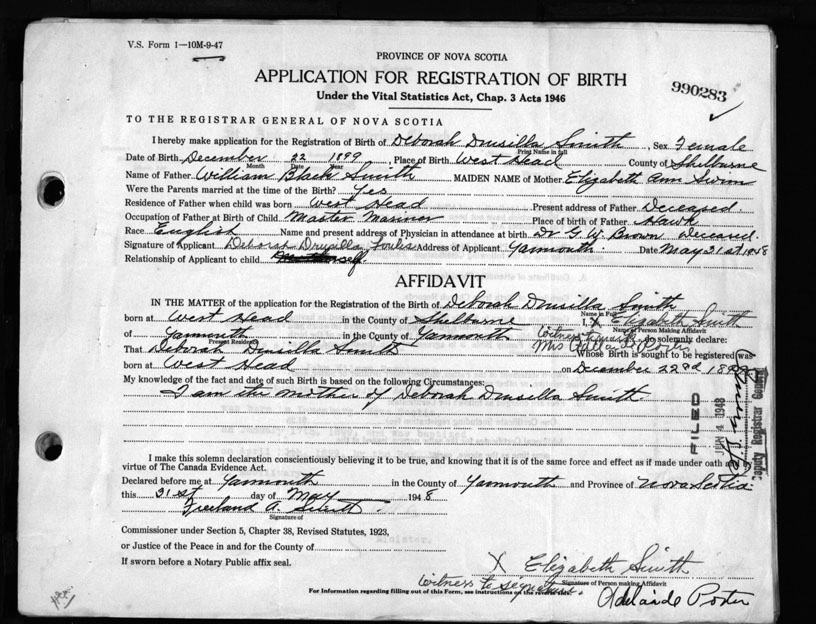 V.S. Form 1—10M-9-47
PROVINCE OF NOVA SCOTIA
APPLICATION FOR REGISTRATION OF BIRTH
Under the Vital Statistics Act, Chap. 3 Acts 1946
990283
TO THE REGISTRAR GENERAL OF NOVA SCOTIA
I hereby make application for the Registration of Birth of Deborah Drusilla Smith, Sex Female
Print Name in full
Date of Birth December 22 1899, Place of Birth West Head County of Shelburne
Month Day Year
Name of Father William Black Smith MAIDEN NAME of Mother Elizabeth Ann Swim
Were the Parents married at the time of the Birth? Yes
Residence of Father when child was born West Head Present address of Father Deceased.
Occupation of Father at Birth of Child Master Mariner Place of birth of Father Hawk
Race English Name and present address of Physician in attendance at birth Dr G. W. Brown Deceased.
Signature of Applicant Deborah Drusilla Address of Applicant Yarmouth. Date May 31st 1948
Relationship of Applicant to child self.
AFFIDAVIT
IN THE MATTER of the application for the Registration of the Birth of Deborah Drusilla Smith
Name in Full
born at West Head in the County of Shelburne I, X Elizabeth Smith
Name of Person Making Affidavit
of Yarmouth in the County of Yarmouth do solemnly declare:
Present Residence
Witness
Mrs Adelaide Porter
That Deborah Drusilla Smith Whose Birth is sought to be registered was
born at West Head on December 22nd 1899
My knowledge of the fact and date of such Birth is based on the following Circumstances:
I am the mother of Deborah Drusilla Smith.
FILED
JUN 4 1948
Deputy Registrar General
I make this solemn declaration conscientiously believing it to be true, and knowing that it is of the same force and effect as if made under oath and by
virtue of The Canada Evidence Act.
Declared before me at Yarmouth in the County of Yarmouth and Province of Nova Scotia
this 31st day of May 1948
Freeland A.
Signature of
Commissioner under Section 5, Chapter 38, Revised Statutes, 1923,
or Justice of the Peace in and for the County of
If sworn before a Notary Public affix seal.
X Elizabeth Smith
Signature of Person making Affidavit
witness to signature. Adelaide Porter
For Information regarding filling out of this Form, see instructions on the reverse side.